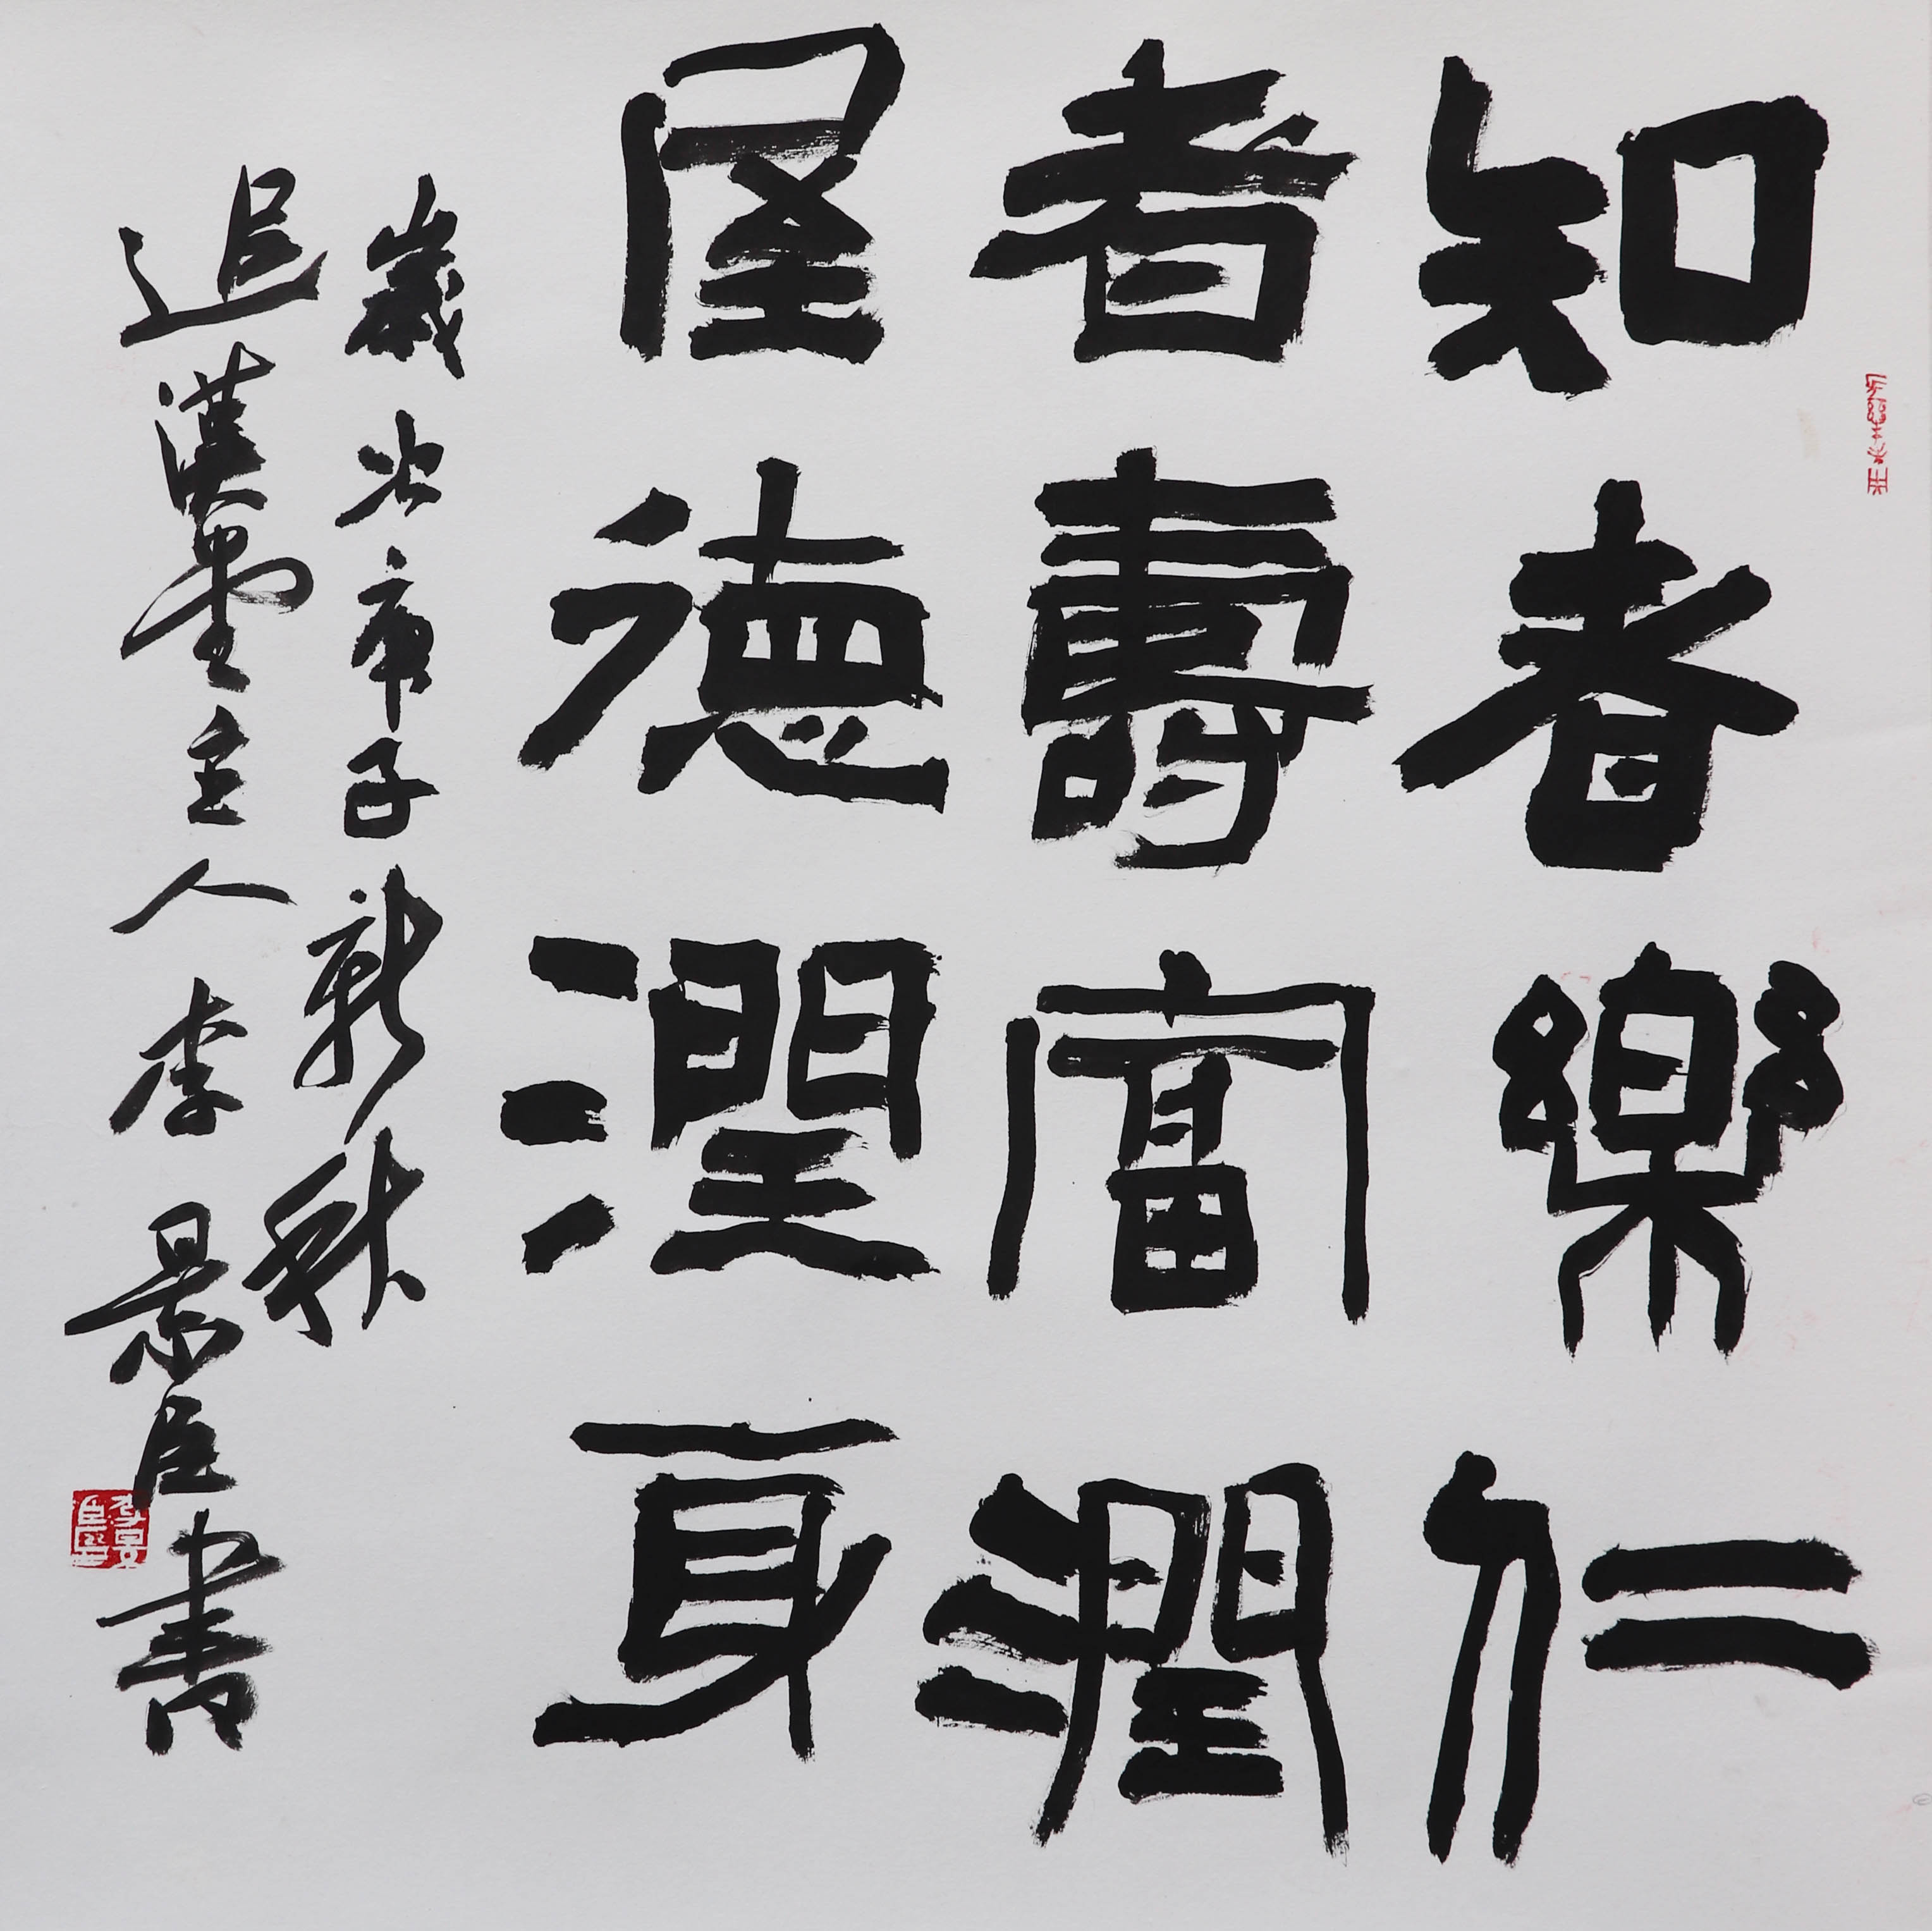 知者樂仁
者壽富潤
屋德潤身
歲次庚子新秋
追漢堂主人李景臣書